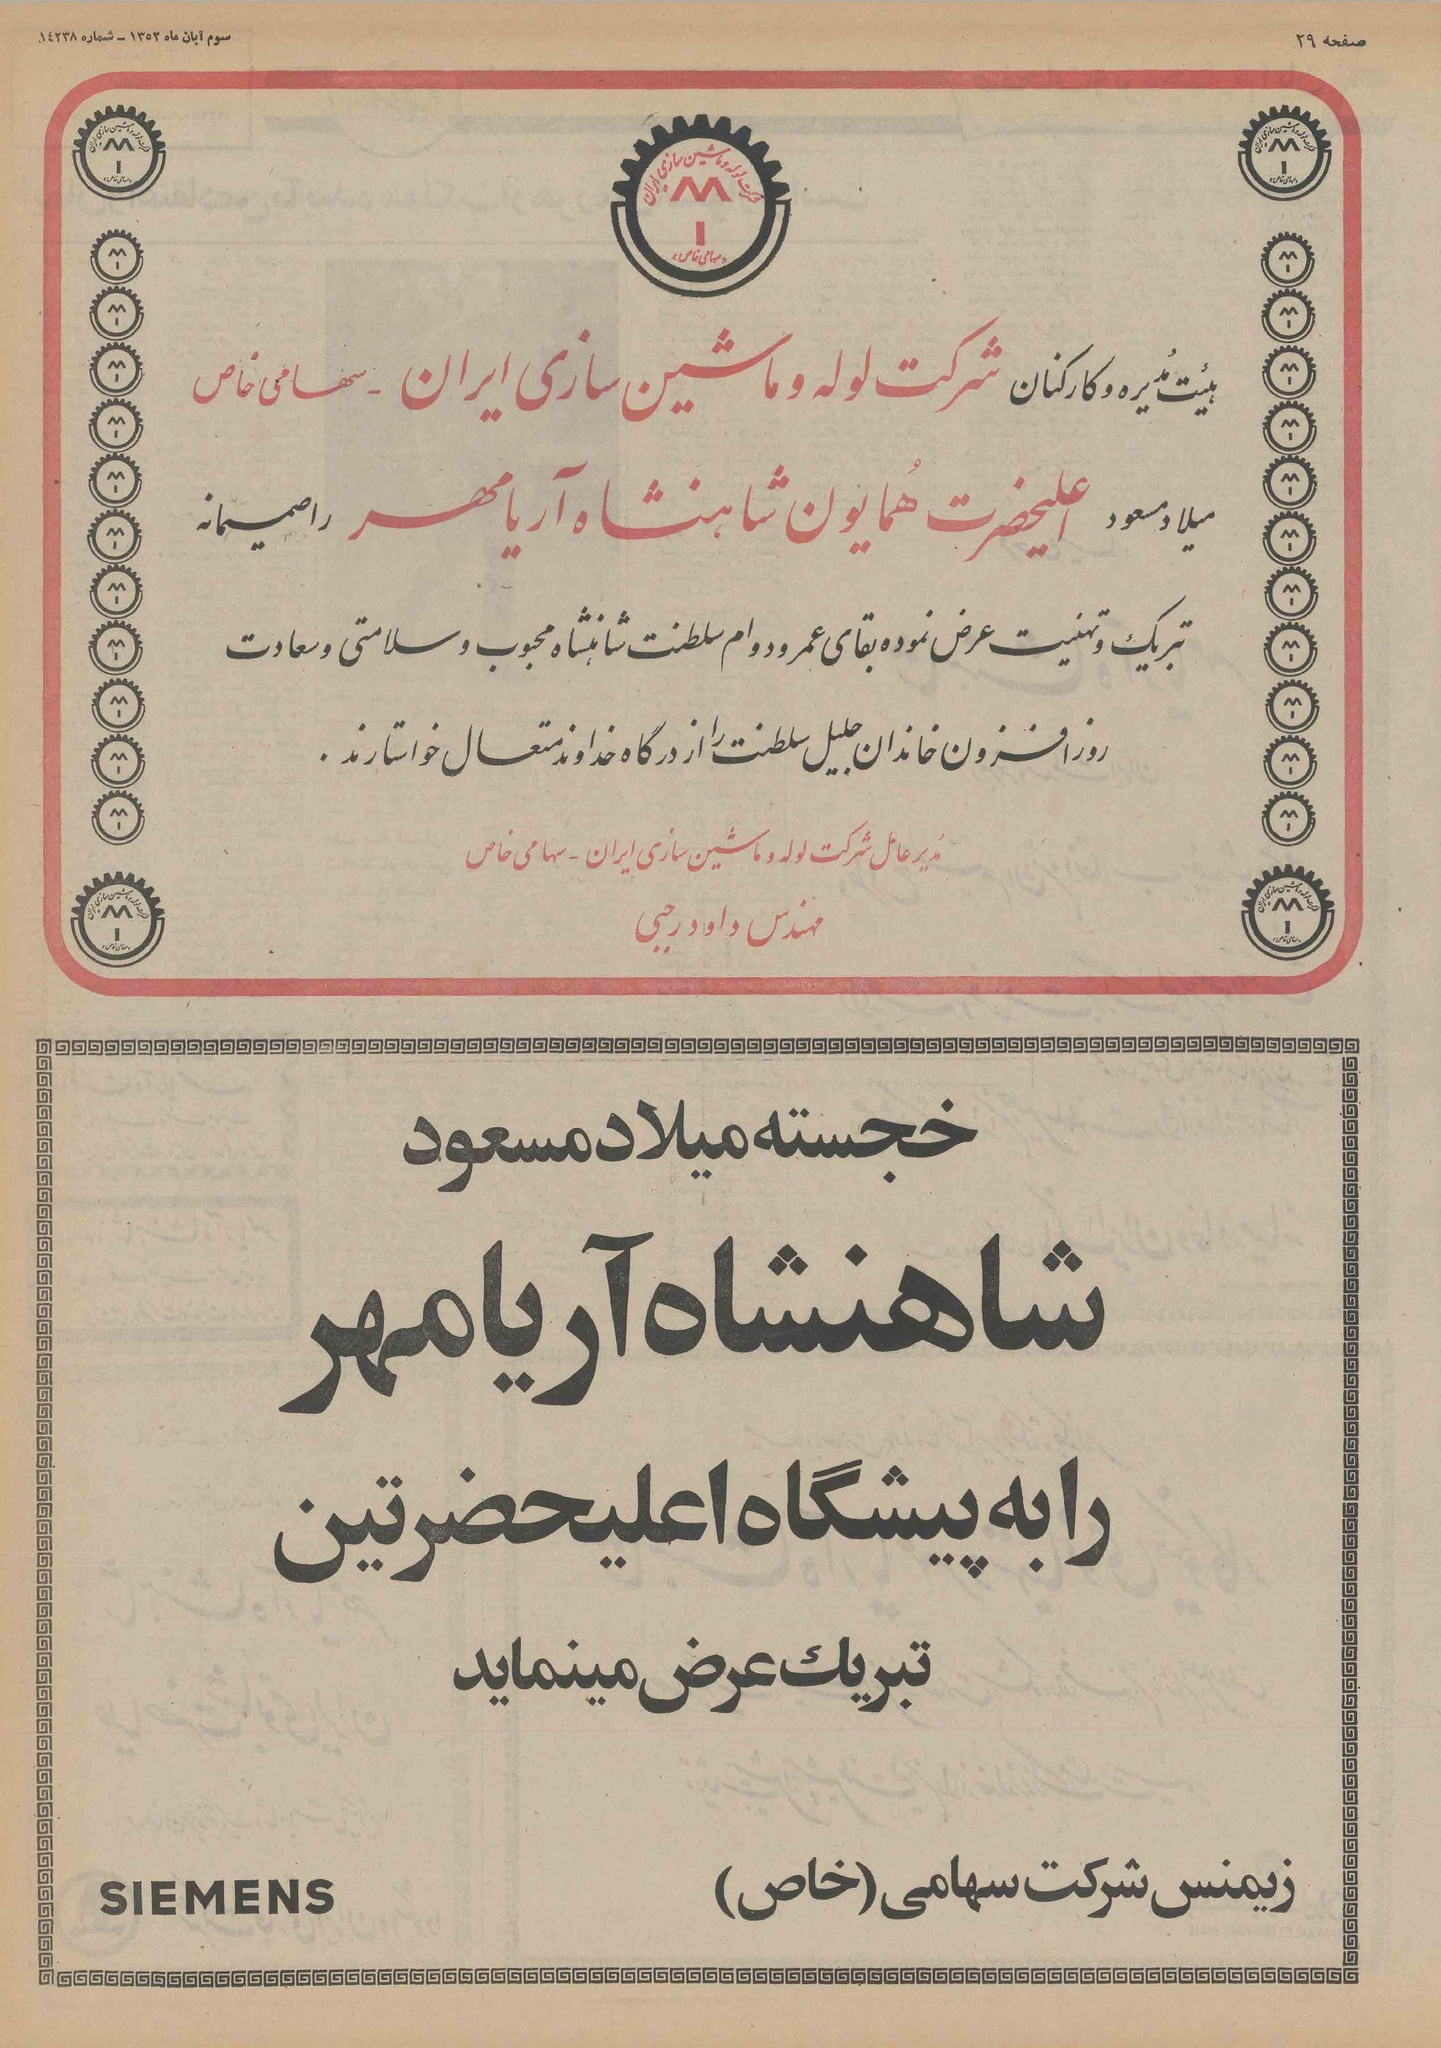 صفحه ۲۹
سوم آبان ماه ۱۳۵۲ - شماره ۱٤۲۳۸
شرکت لوله و ماشین سازی ایران
«سهامی خاص»
هیئت مُدیره و کارکنان شرکت لوله و ماشین سازی ایران - سهامی خاص
میلاد مسعود اعلیحضرت هُمایون شاهنشاه آریامهر را صمیمانه
تبریک و تهنیت عرض نموده بقای عمر و دوام سلطنت شاهنشاه محبوب و سلامتی و سعادت
روز افزون خاندان جلیل سلطنت را از درگاه خداوند متعال خواستارند .
مُدیر عامل شرکت لوله و ماشین سازی ایران - سهامی خاص
مهندس داود رجبی
خجسته میلاد مسعود
شاهنشاه آریامهر
را به پیشگاه اعلیحضرتین
تبریك عرض مینماید
زیمنس شرکت سهامی (خاص)
SIEMENS